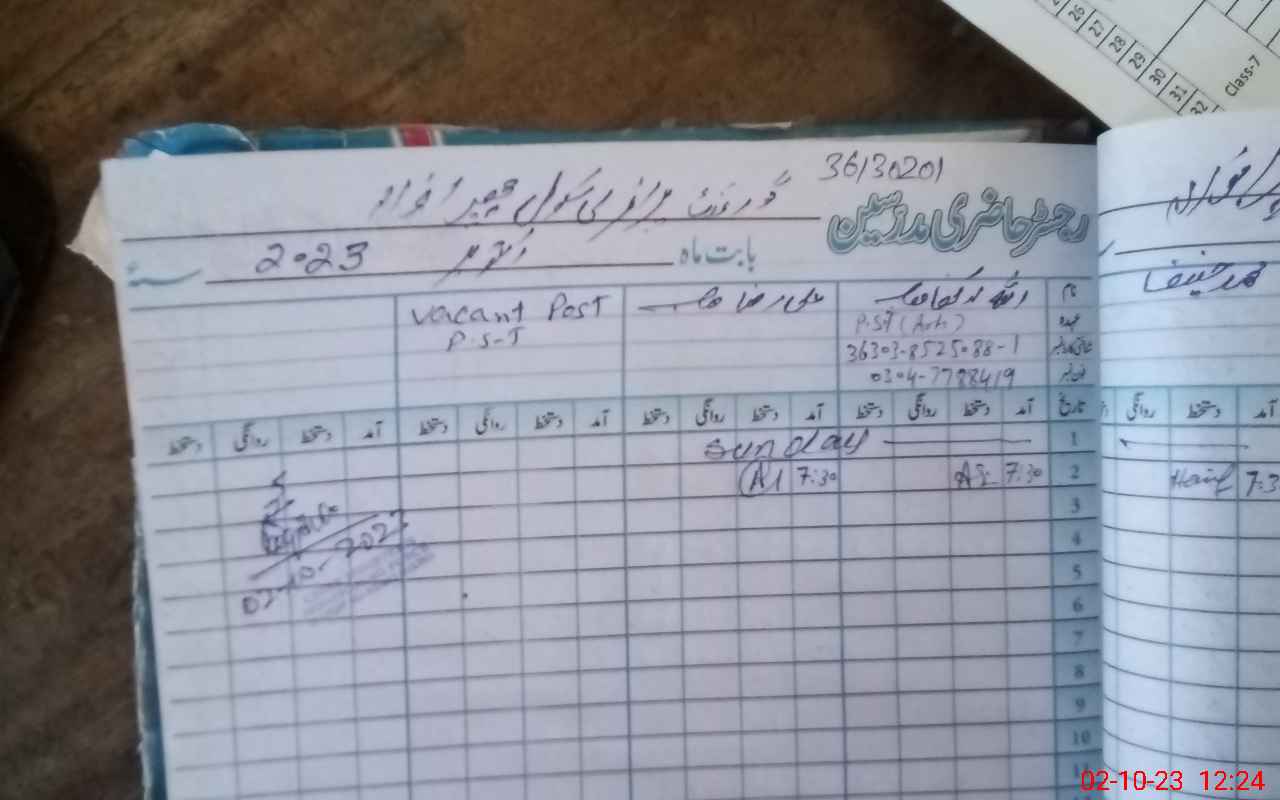 36130201
رجسٹر حاضری مدرسین
گورنمنٹ پرائمری سکول
بابت ماہ اکتوبر 2023 سنہ
نام
علی رضا صاحب
Vacant Post
P.S.T
عہدہ P.ST (Arts)
شناختی کارڈ نمبر 36303-8525088-1
فون نمبر 0304-7788419
تاریخ آمد دستخط روانگی دستخط آمد دستخط روانگی دستخط آمد دستخط روانگی دستخط آمد دستخط روانگی دستخط
1 Sunday
2 7:30 7:30
3
4
5
6
7
8
9
10
11
02-10-2023
محمد حنیف
آمد دستخط روانگی
Hanif
25
26
27
28
29
30
31
32
Class-7
02-10-23 12:24